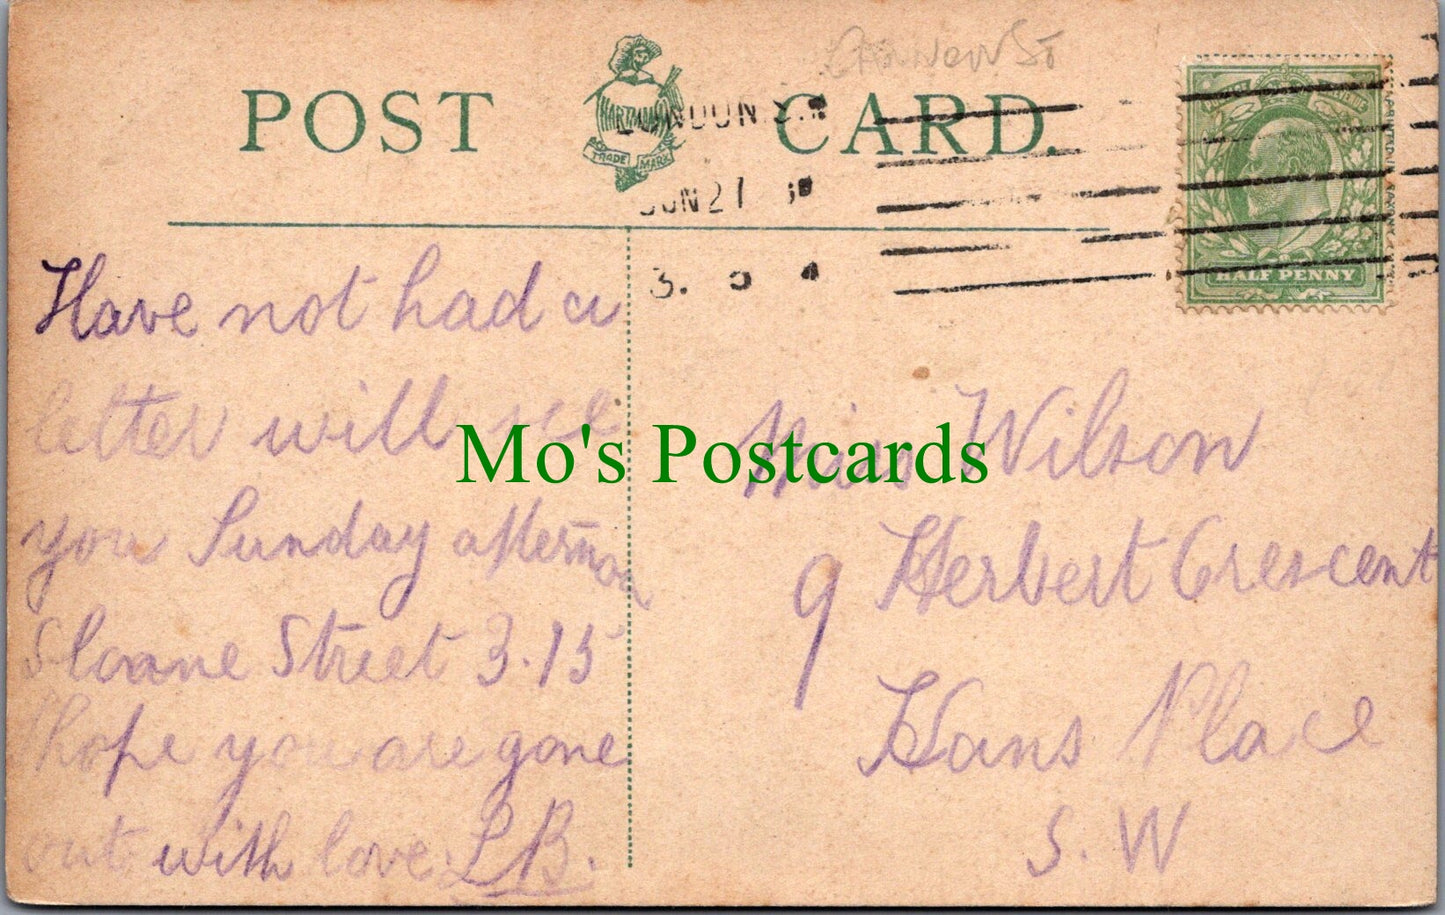 POST CARD.
HARTMANN
TRADE MARK
JUN 27
3. 5 4
HALF PENNY
Have not had a
letter will see
you Sunday afternoon
Sloane Street 3.15
I hope you are gone
out with love LB.
Miss Wilson
9 Herbert Crescent
Hans Place
S. W
Mo's Postcards